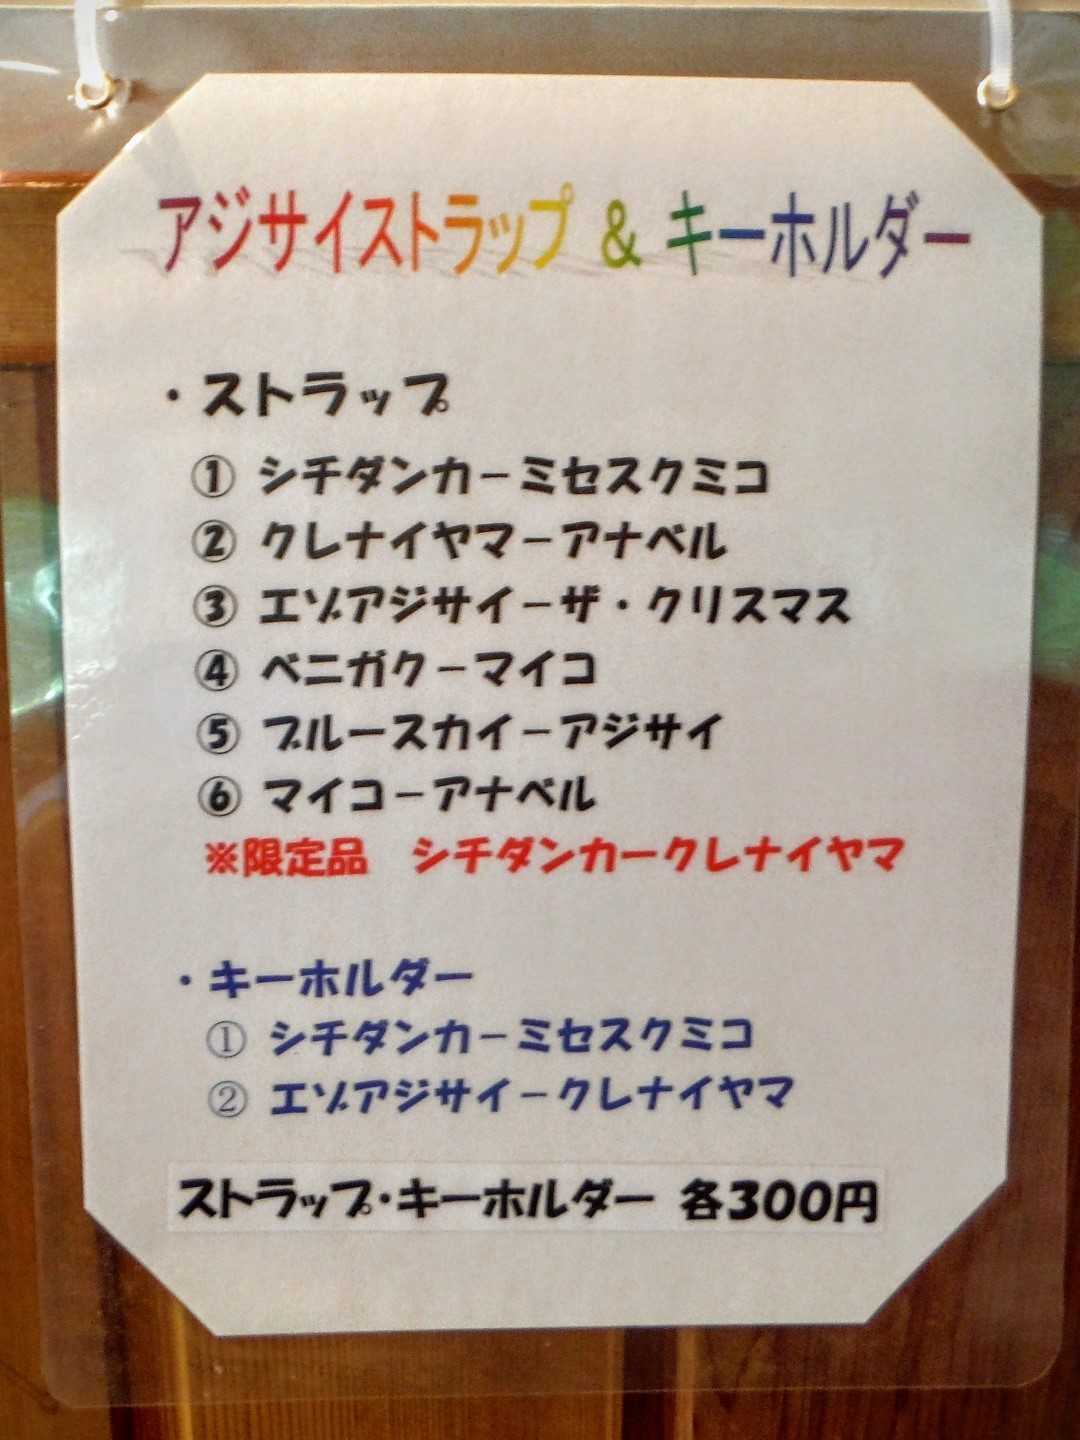 アジサイストラップ & キーホルダー
・ストラップ
① シチダンカーミセスクミコ
② クレナイヤマーアナベル
③ エゾアジサイーザ・クリスマス
④ ベニガクーマイコ
⑤ ブルースカイーアジサイ
⑥ マイコーアナベル
※限定品　シチダンカークレナイヤマ
・キーホルダー
① シチダンカーミセスクミコ
② エゾアジサイークレナイヤマ
ストラップ・キーホルダー 各300円